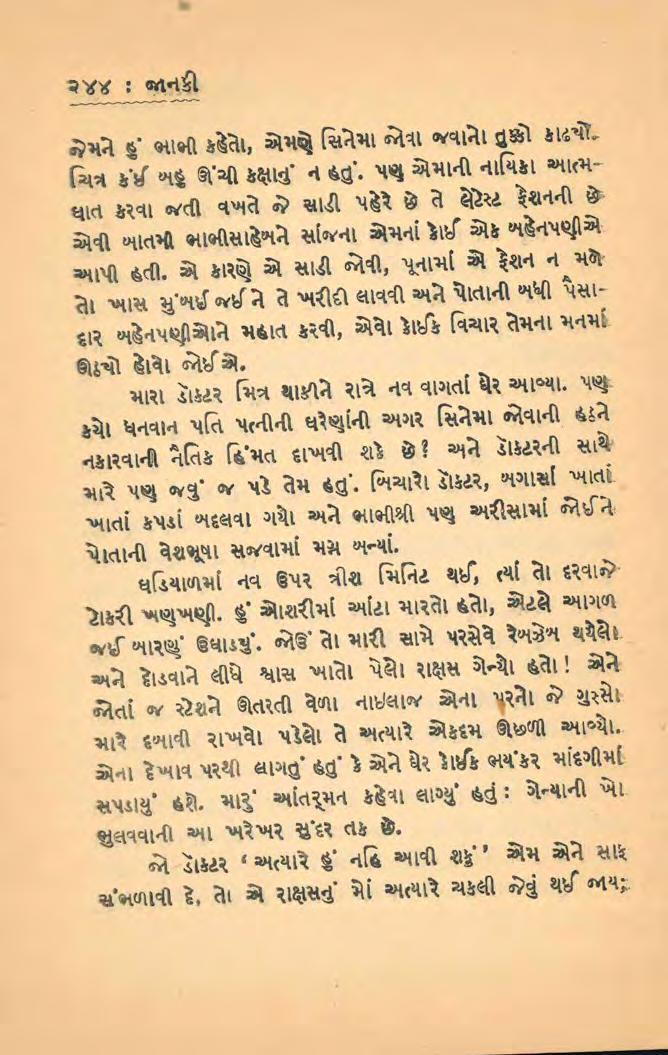 ૨૪૪ : જાનકી
જેમને હું ભાભી કહેતો, એમણે સિનેમા જોવા જવાનો તુક્કો કાઢ્યો.
ચિત્ર કંઈ બહુ ઊંચી કક્ષાનું ન હતું. પણ એમાની નાયિકા આત્મ-
ઘાત કરવા જતી વખતે જે સાડી પહેરે છે તે લેટેસ્ટ ફેશનની છે
એવી બાતમી ભાભીસાહેબને સાંજના એમનાં કોઈ એક બહેનપણીએ
આપી હતી. એ કારણે એ સાડી જોવી, પૂનામાં એ ફેશન ન મળે
તો ખાસ મુંબઈ જઈ ને તે ખરીદી લાવવી અને પોતાની બધી પૈસા-
દાર બહેનપણીઓને મહાત કરવી, એવો કોઈક વિચાર તેમના મનમાં
ઊઠ્યો હોવો જોઈ એ.
મારા ડૉક્ટર મિત્ર થાકીને રાત્રે નવ વાગતાં ઘેર આવ્યા. પણ
કયો ધનવાન પતિ પત્નીની ઘરેણાંની અગર સિનેમા જોવાની હઠને
નકારવાની નૈતિક હિંમત દાખવી શકે છે? અને ડૉક્ટરની સાથે
મારે પણ જવું જ પડે તેમ હતું. બિચારો ડૉક્ટર, બગાસાં ખાતાં
ખાતાં કપડાં બદલવા ગયો અને ભાભીશ્રી પણ અરીસામાં જોઈને
પોતાની વેશભૂષા સજવામાં મગ્ન બન્યાં.
ઘડિયાળમાં નવ ઉપર ત્રીશ મિનિટ થઈ, ત્યાં તો દરવાજે
ટોકરી ખણખણી. હું ઓશરીમાં આંટા મારતો હતો, એટલે આગળ
જઈ બારણું ઉઘાડ્યું. જોઉં તો મારી સામે પરસેવે રેબઝેબ થયેલો
અને દોડવાને લીધે શ્વાસ ખાતો પેલો રાક્ષસ ગેન્યો હતો! એને
જોતાં જ સ્ટેશને ઊતરતી વેળા નાઇલાજ એના પરનો જે ગુસ્સો
મારે દબાવી રાખવો પડેલો તે અત્યારે એકદમ ઊછળી આવ્યો.
એના દેખાવ પરથી લાગતું હતું કે એને ઘેર કોઈક ભયંકર માંદગીમાં
સપડાયું હશે. મારું આંતર્‌મન કહેવા લાગ્યું હતું : ગેન્યાની ખો
ભુલવવાની આ ખરેખર સુંદર તક છે.
જો ડૉક્ટર ‘અત્યારે હું નહિ આવી શકું’ એમ એને સાફ
સંભળાવી દે, તો એ રાક્ષસનું મોં અત્યારે ચકલી જેવું થઈ જાય;